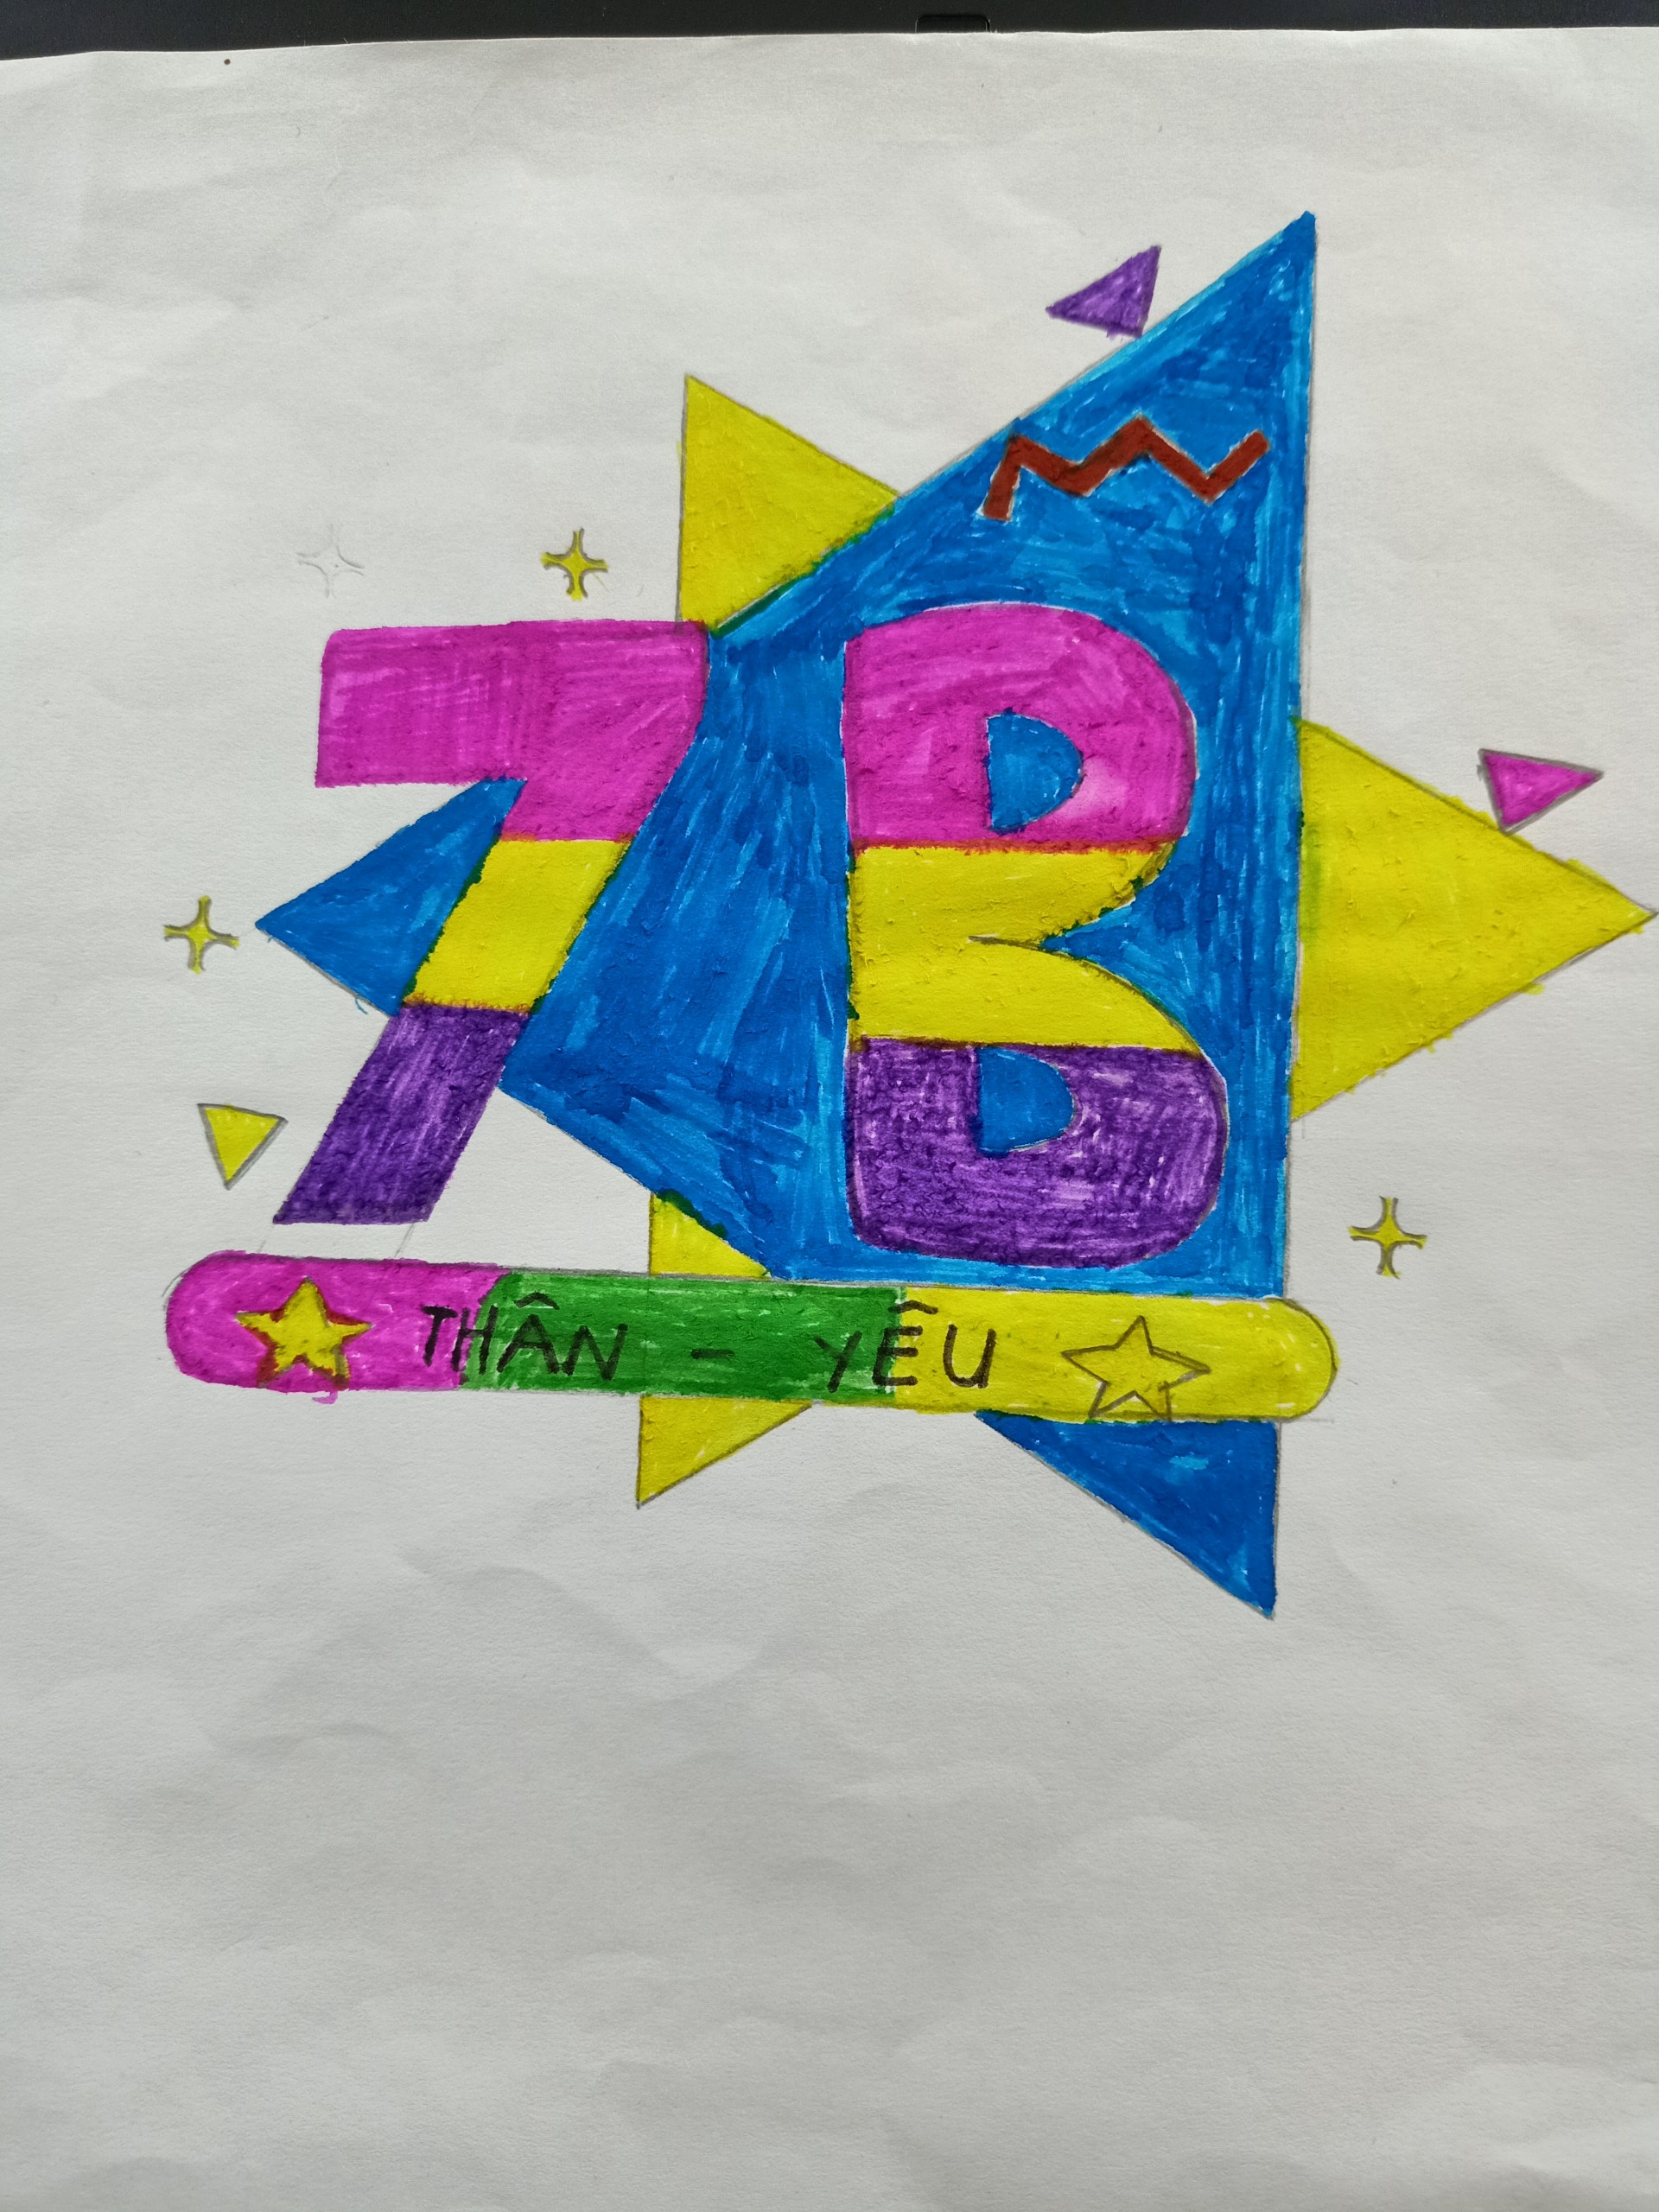 7B
THÂN - YÊU